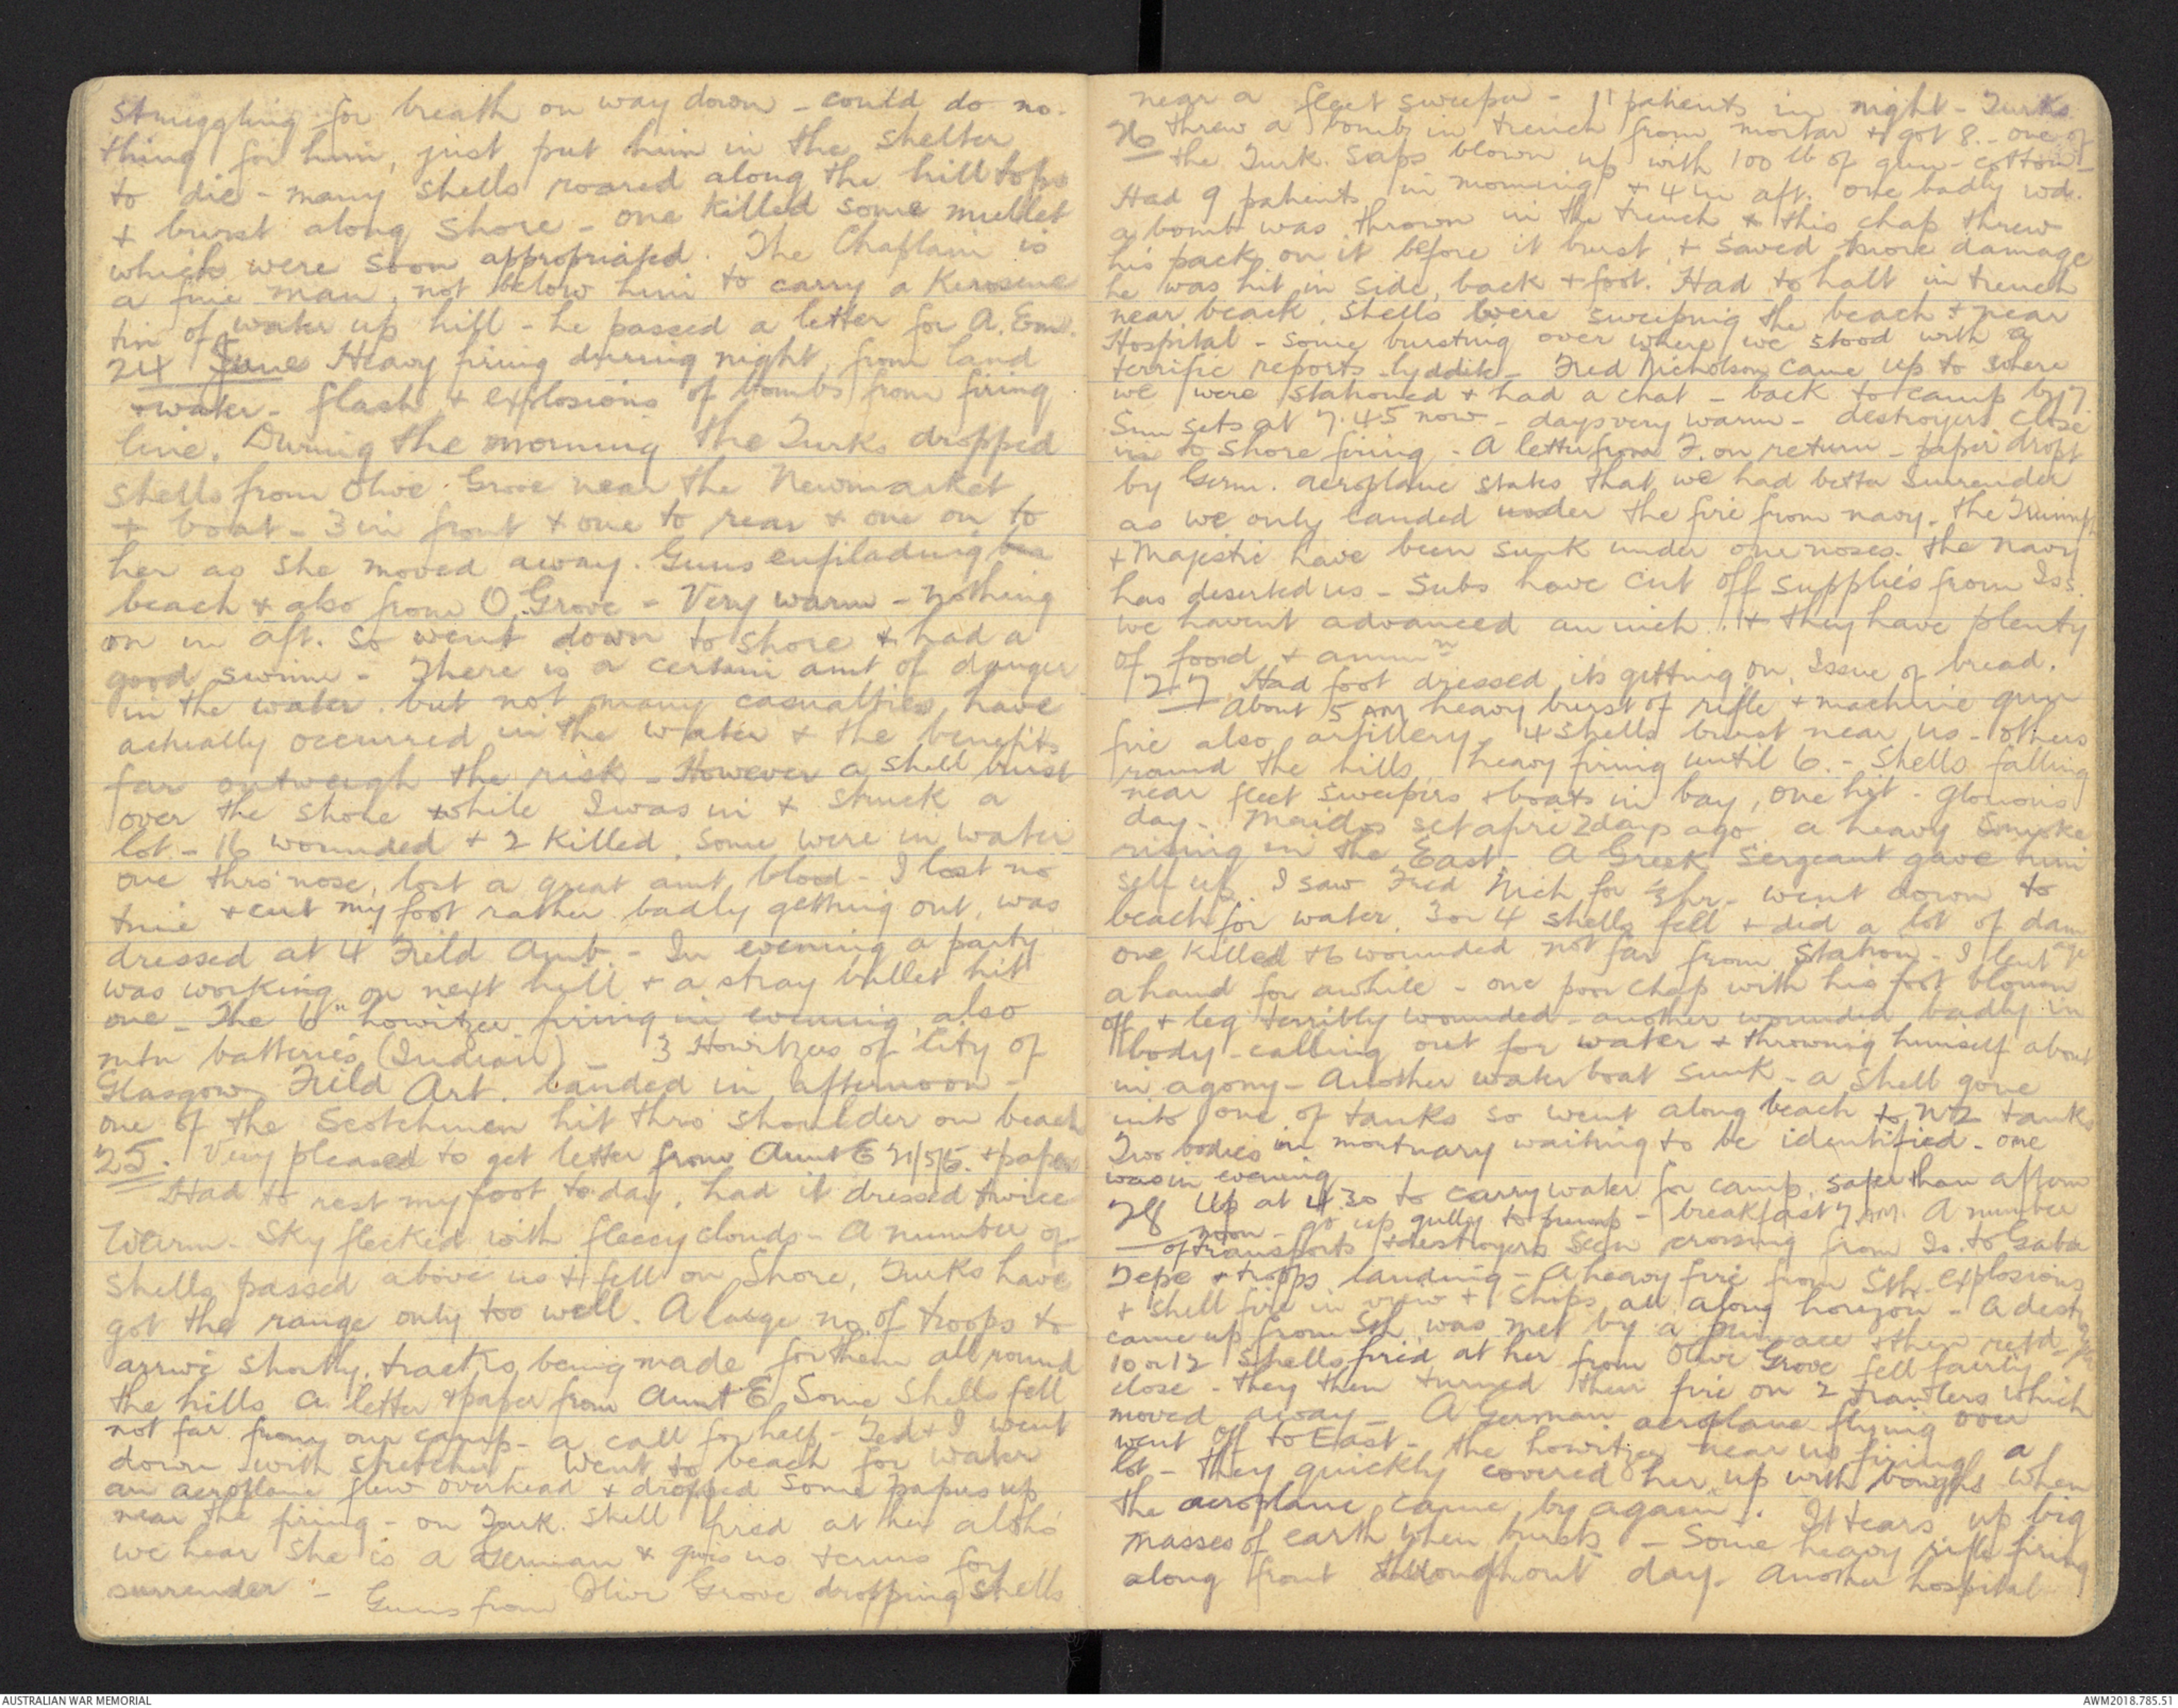 struggling for breath on way down - could do no-
thing for him, just put him in the shelter
to die - many shells roared along the hill tops
+ burst along shore - one killed some mullet
which were soon appropriated. The Chaplain is
a fine man, not below him to carry a Kerosene
tin of water up hill - he passed a letter for A. Em.
24 June Heavy firing during night, from land
+ water - flash + explosions of bombs from firing
line. During the morning the Turks dropped
shells from Olive Grove near the Newmarket
+ boat - 3 in front + one to rear + one on to
her as she moved away. Guns enfilading
beach + also from O. Grove - Very warm - nothing
on in aft. so went down to shore + had a
good swim - There is a certain amt of danger
in the water. but not many casualties have
actually occurred in the water + the benefits
far outweigh the risk - However a shell burst
over the shore while I was in + struck a
lot - 16 wounded + 2 killed. Some were in water
one thro' nose, lost a great amt blood - I lost no
time + cut my foot rather badly getting out, was
dressed at 4 Field Amb - In evening a party
was working on next hill + a stray bullet hit
one - The 6" howitzer firing in evening, also
mtn batteries (Indian) - 3 Howitzers of City of
Glasgow Field Art. landed in afternoon -
one of the Scotchmen hit thro' shoulder on beach
25. Very pleased to get letter from Aunt E 21/5/15. + paper
Had to rest my foot today, had it dressed twice
Warm - Sky flecked with fleecy clouds - A number of
shells passed above us + fell on shore, Turks have
got the range only too well. A large no. of troops to
arrive shortly, tracks being made for them all round
the hills a letter + paper from Aunt E Some shells fell
not far from our camp - a call for help - Ted + I went
down with stretcher - Went to beach for water
an aeroplane flew overhead + dropped some papers up
near the firing - on Turk. shell fired at her altho'
we hear she is a German + gives us terms for
surrender - Guns from Olive Grove dropping shells
near a fleet sweeper - 11 patients in night - Turks
26 threw a bomb in trench from mortar + got 8. - one of
the Turk. saps blown up with 100 lb of gun-cotton -
Had 9 patients in morning + 4 in aft. one badly wd.
a bomb was thrown in the trench + this chap threw
his pack on it before it burst, + saved more damage
he was hit in side, back + foot. Had to halt in trench
near beach. Shells were sweeping the beach + near
Hospital - some bursting over where we stood with a
terrific reports - lyddite - Fred Nicholson came up to where
we were stationed + had a chat - back to camp by 7.
Sun sets at 7.45 now - days very warm - destroyers close
in to shore firing - A letter from F. on return - paper dropt
by Germ. aeroplane states that we had better surrender
as we only landed under the fire from navy. The Triumph
+ Majestic have been sunk under our noses. The navy
has deserted us - Subs have cut off supplies from Iss.
we havent advanced an inch. + they have plenty
of food + ammn
27 Had foot dressed, its getting on. Issue of bread.
About 5 AM heavy burst of rifle + machine gun
fire also artillery. 4 shells burst near us - others
round the hills, heavy firing until 6. - Shells falling
near fleet sweepers + boats in bay, one hit - glorious
day - Maidos set afire 2 days ago, a heavy smoke
rising in the East - A Greek Sergeant gave him
self up. I saw Fred Nich for ½ hr - went down to
beach for water. 3 or 4 shells fell + did a lot of dam
age
one killed + 6 wounded not far from station - I lent
a hand for awhile - one poor chap with his foot blown
off + leg terribly wounded - another wounded badly in
body - calling out for water + throwing himself about
in agony - Another water boat sunk - a shell gone
into one of tanks so went along beach to NZ tanks
Two bodies in mortuary waiting to be identified - one
was in evening
28 Up at 4.30 to carry water for camp, safer than after
noon - go up gully to pump - breakfast 7 AM. A number
of transports + destroyers seen crossing from Is. to Gaba
Tepe + troops landing - A heavy fire from Sth. explosions
+ shell fire in view + ships all along horizon - A destroyer
came up from Sth. was met by a pinnace + then retd -
10 or 12 shells fired at her from Olive Grove fell fairly
close - they then turned their fire on 2 trawlers which
moved away - A German aeroplane flying over
went off to East - the howitzer near us firing a
lot - they quickly covered her up with boughs when
the aeroplane came by again. It tears up big
masses of earth when bursts - Some heavy rifle firing
along front throughout day. Another hospital
AUSTRALIAN WAR MEMORIAL
AWM2018.785.51